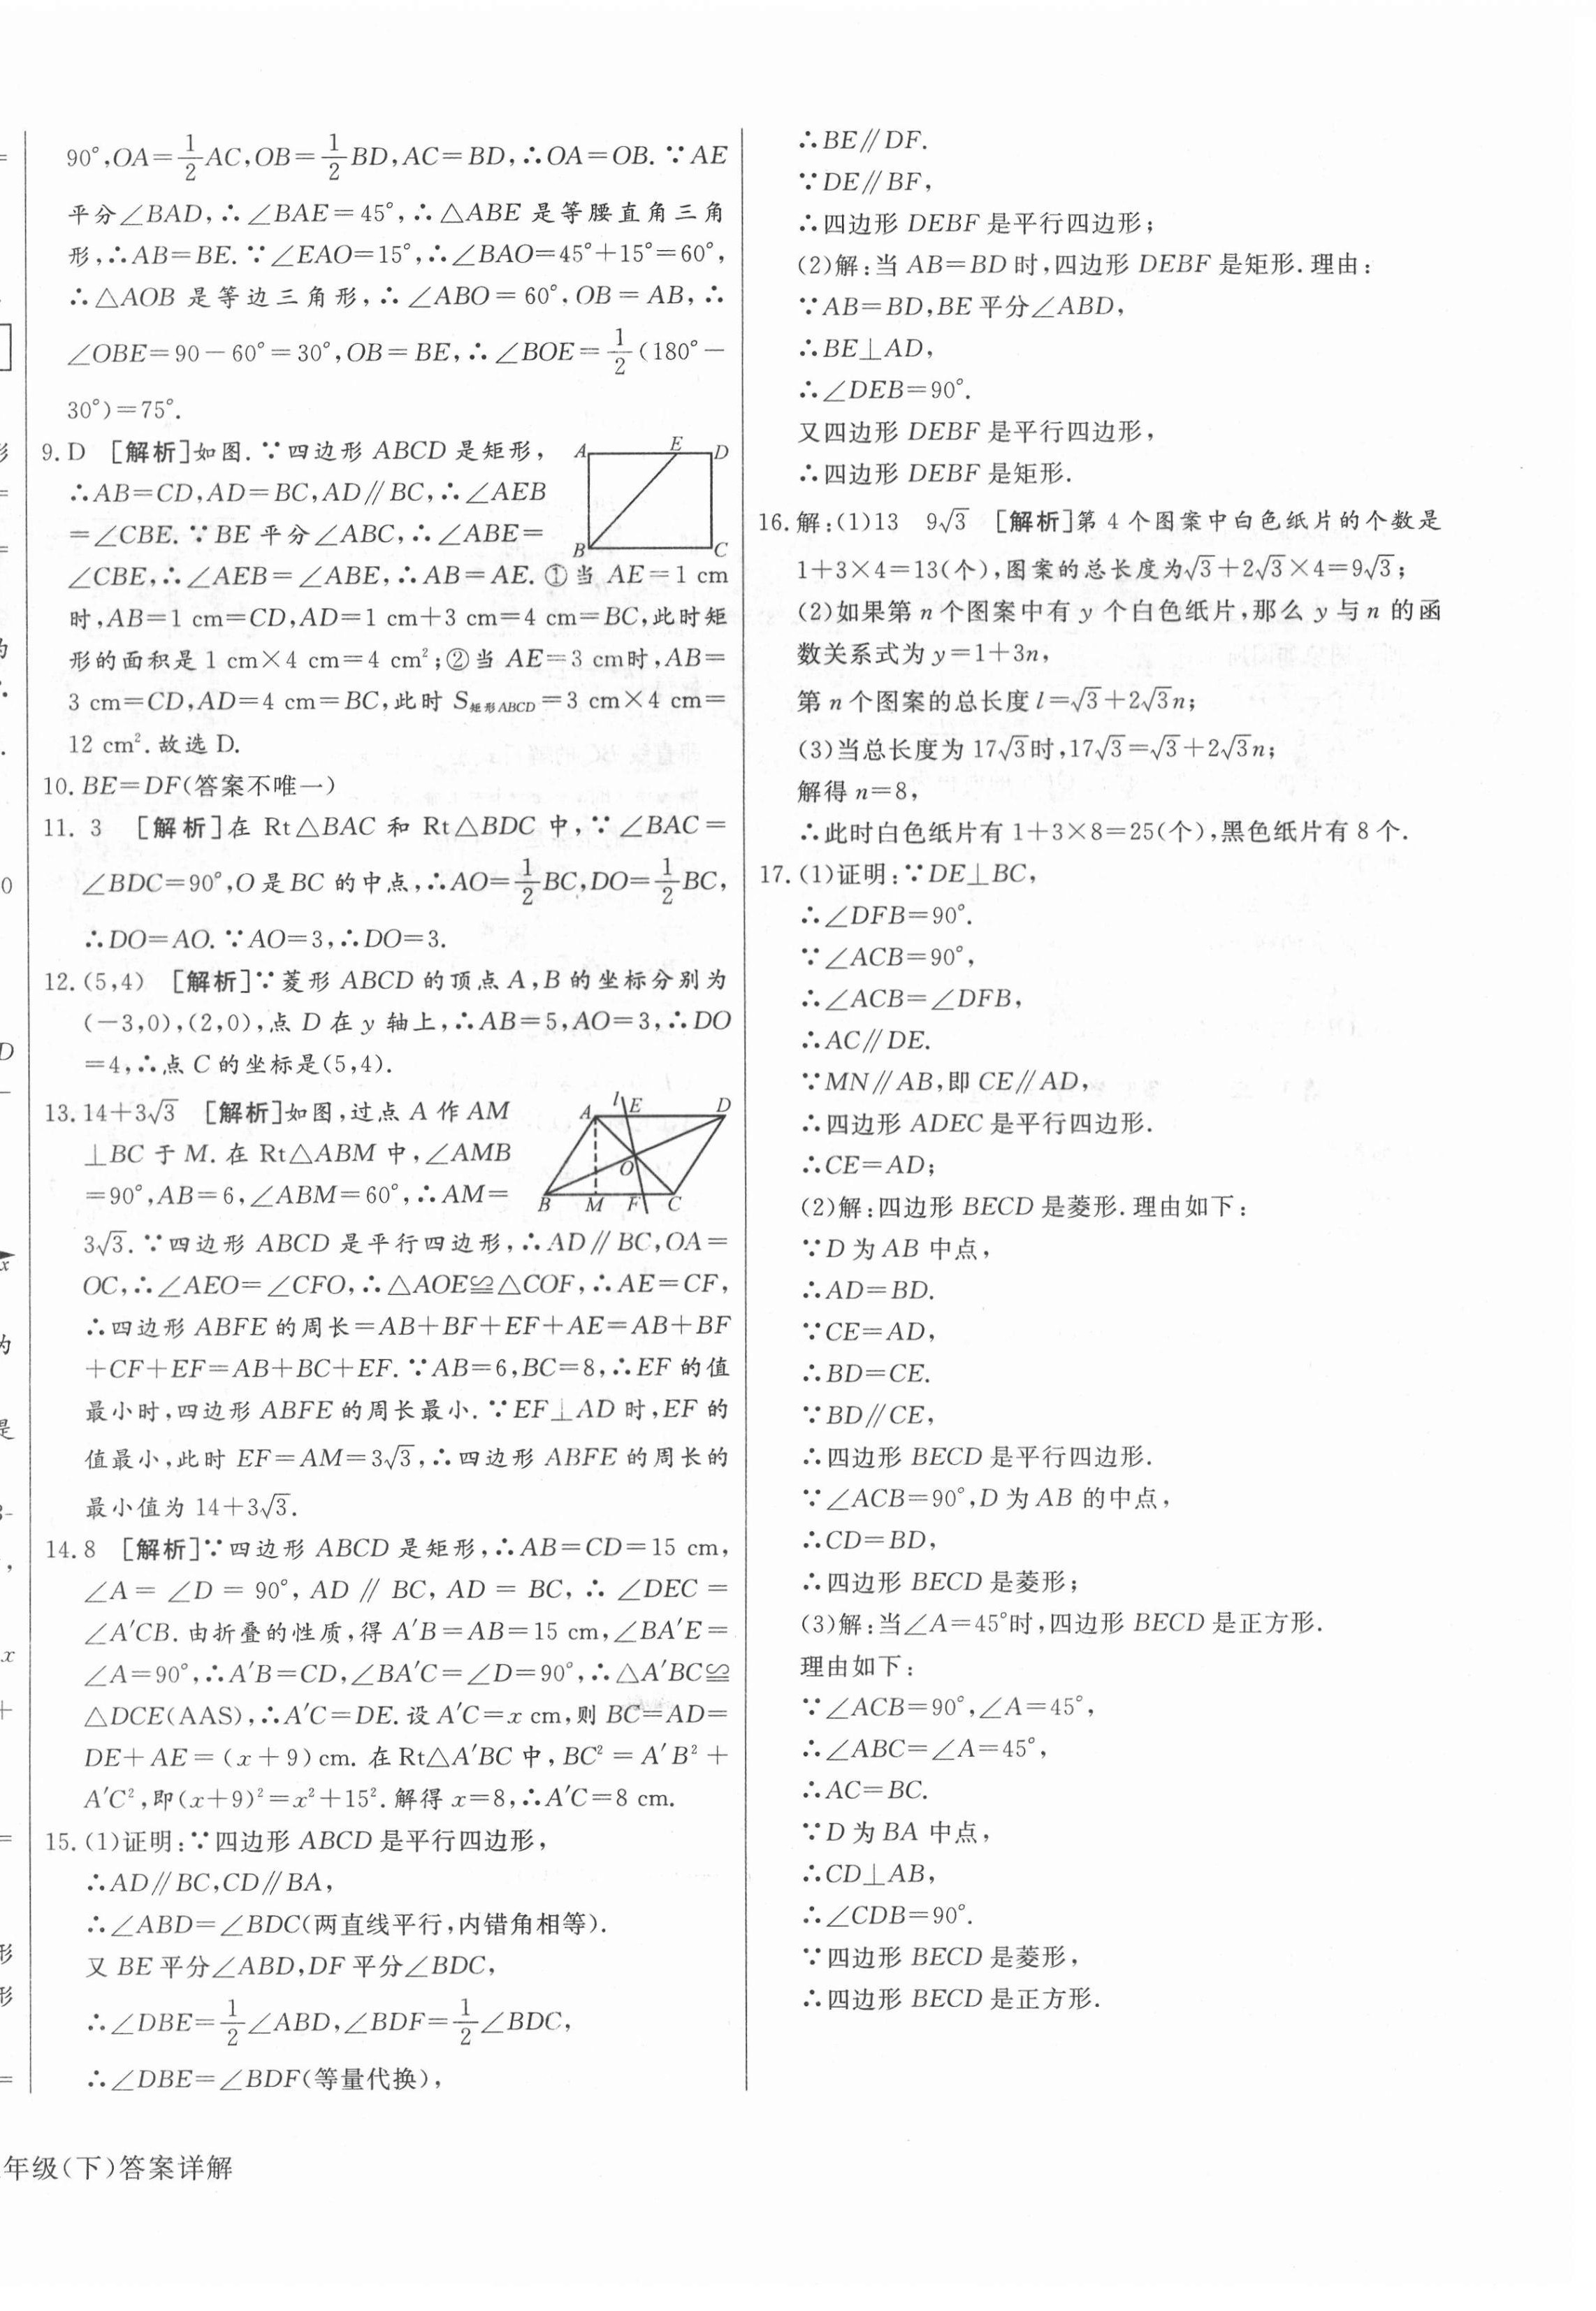 90°,OA=1/2AC,OB=1/2BD,AC=BD,∴OA=OB.∵AE
平分∠BAD,∴∠BAE=45°,∴△ABE 是等腰直角三角
形,∴AB=BE.∵∠EAO=15°,∴∠BAO=45°+15°=60°,
∴△AOB 是等边三角形,∴∠ABO=60°,OB=AB,∴
∠OBE=90-60°=30°,OB=BE,∴∠BOE=1/2(180°-
30°)=75°.
9.D [解析]如图.∵四边形 ABCD 是矩形,
∴AB=CD,AD=BC,AD∥BC,∴∠AEB
=∠CBE.∵BE 平分∠ABC,∴∠ABE=
∠CBE,∴∠AEB=∠ABE,∴AB=AE.①当 AE=1 cm
时,AB=1 cm=CD,AD=1 cm+3 cm=4 cm=BC,此时矩
形的面积是 1 cm×4 cm=4 cm²;②当 AE=3 cm时,AB=
3 cm=CD,AD=4 cm=BC,此时 S矩形ABCD=3 cm×4 cm=
12 cm².故选 D.
A E D
B C
10.BE=DF(答案不唯一)
11. 3 [解析]在 Rt△BAC 和 Rt△BDC 中,∵∠BAC=
∠BDC=90°,O 是 BC 的中点,∴AO=1/2BC,DO=1/2BC,
∴DO=AO.∵AO=3,∴DO=3.
12.(5,4) [解析]∵菱形 ABCD 的顶点 A,B 的坐标分别为
(-3,0),(2,0),点 D 在 y 轴上,∴AB=5,AO=3,∴DO
=4,∴点 C 的坐标是(5,4).
13.14+3√3 [解析]如图,过点 A 作 AM
⊥BC 于 M.在 Rt△ABM 中,∠AMB
=90°,AB=6,∠ABM=60°,∴AM=
A l E D
O
B M F C
3√3.∵四边形 ABCD 是平行四边形,∴AD∥BC,OA=
OC,∴∠AEO=∠CFO,∴△AOE≌△COF,∴AE=CF,
∴四边形 ABFE 的周长=AB+BF+EF+AE=AB+BF
+CF+EF=AB+BC+EF.∵AB=6,BC=8,∴EF 的值
最小时,四边形 ABFE 的周长最小.∵EF⊥AD 时,EF 的
值最小,此时 EF=AM=3√3,∴四边形 ABFE 的周长的
最小值为 14+3√3.
14.8 [解析]∵四边形 ABCD 是矩形,∴AB=CD=15 cm,
∠A=∠D=90°,AD∥BC,AD=BC,∴∠DEC=
∠A′CB.由折叠的性质,得 A′B=AB=15 cm,∠BA′E=
∠A=90°,∴A′B=CD,∠BA′C=∠D=90°,∴△A′BC≌
△DCE(AAS),∴A′C=DE.设 A′C=x cm,则 BC=AD=
DE+AE=(x+9)cm.在 Rt△A′BC 中,BC²=A′B²+
A′C²,即(x+9)²=x²+15².解得 x=8,∴A′C=8 cm.
15.(1)证明:∵四边形 ABCD 是平行四边形,
∴AD∥BC,CD∥BA,
∴∠ABD=∠BDC(两直线平行,内错角相等).
又 BE 平分∠ABD,DF 平分∠BDC,
∴∠DBE=1/2∠ABD,∠BDF=1/2∠BDC,
∴∠DBE=∠BDF(等量代换),
∴BE∥DF.
∵DE∥BF,
∴四边形 DEBF 是平行四边形;
(2)解:当 AB=BD 时,四边形 DEBF 是矩形.理由:
∵AB=BD,BE 平分∠ABD,
∴BE⊥AD,
∴∠DEB=90°.
又四边形 DEBF 是平行四边形,
∴四边形 DEBF 是矩形.
16.解:(1)13 9√3 [解析]第 4 个图案中白色纸片的个数是
1+3×4=13(个),图案的总长度为√3+2√3×4=9√3;
(2)如果第 n 个图案中有 y 个白色纸片,那么 y 与 n 的函
数关系式为 y=1+3n,
第 n 个图案的总长度 l=√3+2√3n;
(3)当总长度为 17√3时,17√3=√3+2√3n;
解得 n=8,
∴此时白色纸片有 1+3×8=25(个),黑色纸片有 8 个.
17.(1)证明:∵DE⊥BC,
∴∠DFB=90°.
∵∠ACB=90°,
∴∠ACB=∠DFB,
∴AC∥DE.
∵MN∥AB,即 CE∥AD,
∴四边形 ADEC 是平行四边形.
∴CE=AD;
(2)解:四边形 BECD 是菱形.理由如下:
∵D 为 AB 中点,
∴AD=BD.
∵CE=AD,
∴BD=CE.
∵BD∥CE,
∴四边形 BECD 是平行四边形.
∵∠ACB=90°,D 为 AB 的中点,
∴CD=BD,
∴四边形 BECD 是菱形;
(3)解:当∠A=45°时,四边形 BECD 是正方形.
理由如下:
∵∠ACB=90°,∠A=45°,
∴∠ABC=∠A=45°,
∴AC=BC.
∵D 为 BA 中点,
∴CD⊥AB,
∴∠CDB=90°.
∵四边形 BECD 是菱形,
∴四边形 BECD 是正方形.
年级(下)答案详解